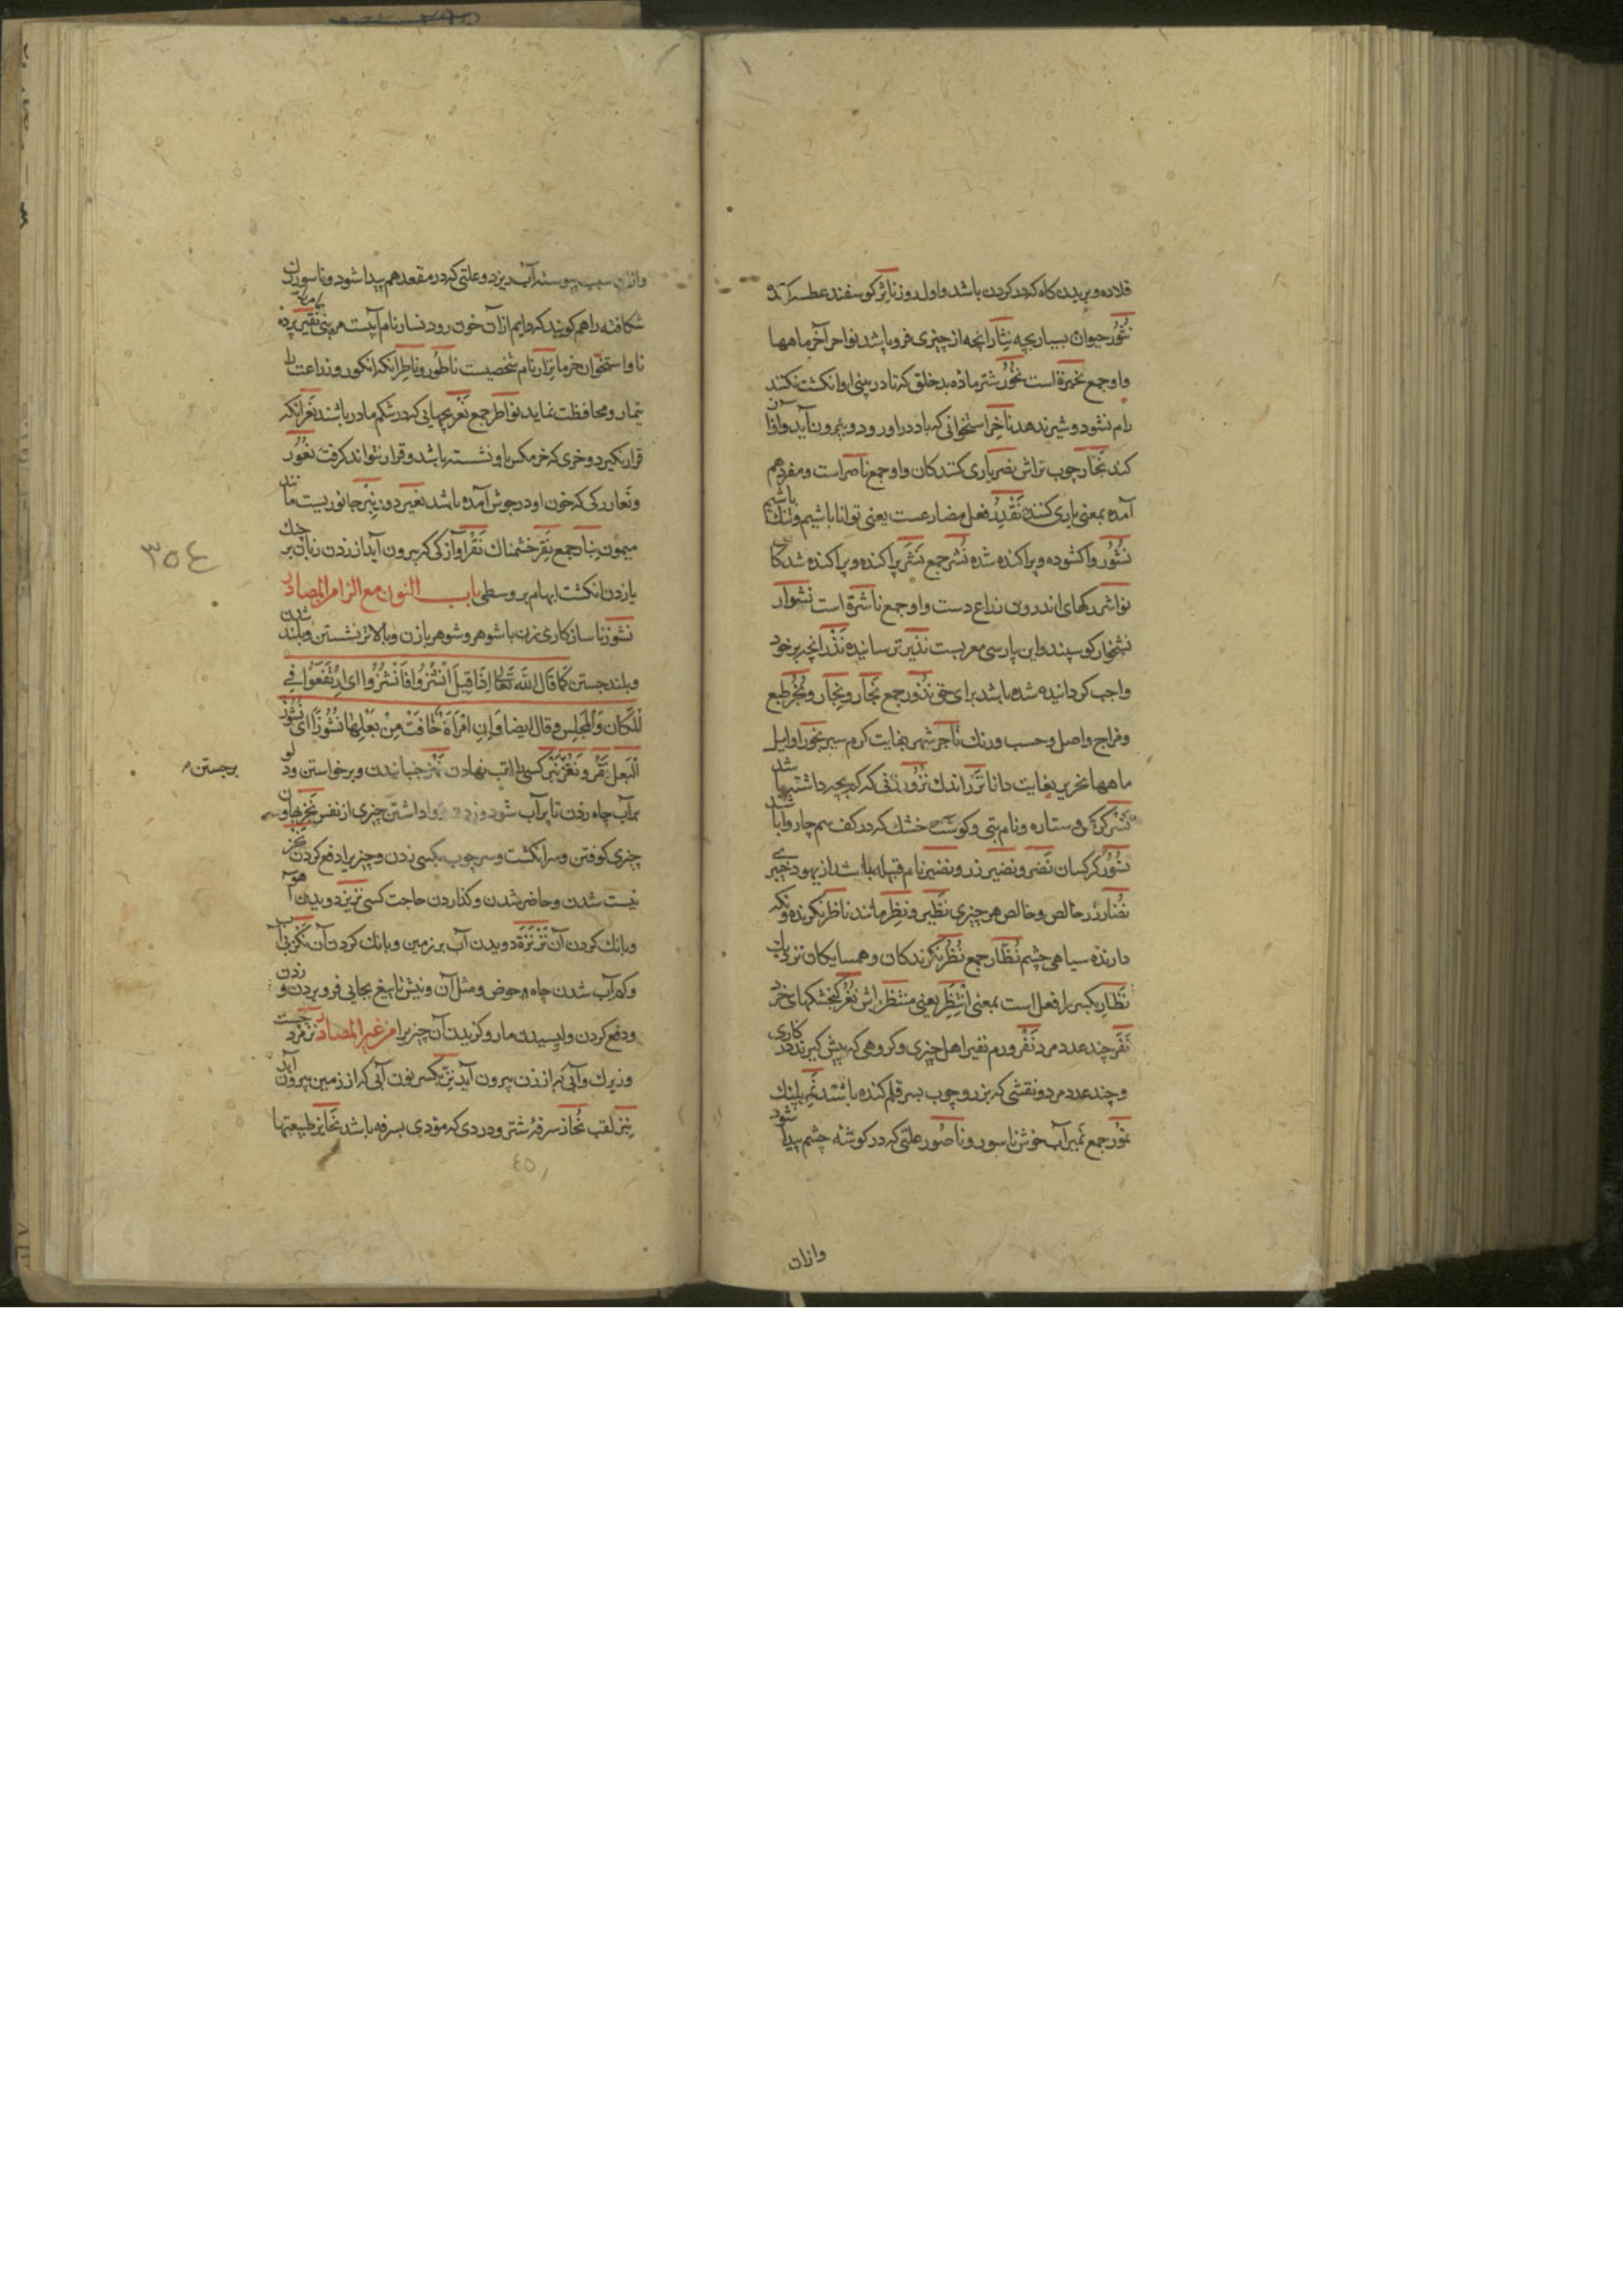 قلاده و بریدن کاه که در کردن باشد و اول روز ناثر کوسفند عطسه کننده
نثور حیوان بسیار بچه نثار انچه از چیزی فرو پاشد نواحر آخر ماهها
واو جمع نحیرة است نخور شتر ماده بدخلق که تا در بینی او انکشت نکنند
رام نشود و شیر ندهد ناخر استخوانی که باد در او رود و بیرون آید و آواز
کند نجار چوب تراش نصر یاری کنندکان و او جمع ناصر است و مفرد هم
آمده بمعنی یاری کننده نقدر فعل مضارعست یعنی توانا باشیم و تنک
نشور واکشوده و پراکنده شده نشر جمع نشر پراکنده و پراکنده شدکان
نواشر رکهای اندرون ذراع دست و او جمع ناشرة است نشوار
نشخوار کوسپند و این پارسی معربست نذیر ترساننده نذر انچه بر خود
واجب کردانیده شده باشد برای حق نذور جمع نجار و نجار و نجر طبع
و مزاج و اصل و حسب و رنك ناجر شهر بغایت کرم سیر نحور اوایل
ماهها نحریر بغایت دانا نزر اندك نزور زنی که کم بچه داشته باشد
نسر کرکس و ستاره و نام بتی و کوشت خشك که در کف سم چاروا باشد
نسور کرکسان نضر و نضیر زر و نضیر نام قبیله باشد از یهود خیبر
نضار زر خالص و خالص هر چیزی نظیر و نظر مانند ناظر نکرنده و نکه
دارنده سیاهی چشم نظار جمع نظر نکرندکان و همسایکان نزدیك
نظار بکسر را فعل است بمعنی انتظر یعنی منتظر باش نغر کنجشکهای خرد
نفر چند عدد مرد نفر ورم نفیر اهل چیزی و کروهی که پیش کیرند در کاری
و چند عدد مرد و نقشی که بزر و چوب بسر قلم کنده باشند نمر پلنك
نمور جمع نمیر آب خوش ناسور و ناصور علتی که در کوشه چشم پیدا شود
وازان
وازان سبب پیوسته آب ریزد و علتی که در مقعد هم پیدا شود و ناسور
شکافته را هم کویند که دایم از آن خون رود نسار نام آبیست مر بنی نقیر پرده
ناو استخوان خرما نزار نام شخصیست ناطور و ناطر انکه انکور و زراعت را
تیمار و محافظت نماید نواطر جمع نغر بچهایی که در شکم مادر باشند نعر انکه
قرار نکیرد و خری که خر مکس باو نشسته باشد و قرار نتواند کرفت نعور
و نعار رکی که خون او در جوش آمده باشد نعیر دور نبر جانوریست مانند
میمون نبار جمع نقر خشمناك نقر آوازکی که بیرون آید از زدن زبان بر حنك
یا زدن انکشت ابهام بر وسطی باب النون مع الزا من المصادر
نشوز ناسازکاری زن با شوهر و شوهر با زن و بالاتر نشستن و بلند شدن
و بلند جستن کما قال الله تعالی اذا قیل انشزوا فانشزوا ای ارتفعوا فی
المکان و المجلس و قال ایضا و ان امراة خافت من بعلها نشوزا ای نشوز
البعل نقز و نغز نبز کسی را لقب نهادن نهز جنبانیدن و برخواستن و دلو
برجستن
بر آب چاه زدن تا پر آب شود و زدن و واداشتن چیزی از نفس نحز بهاون
چیزی کوفتن و سر انکشت و سر چوب بکسی زدن و چیزی را دفع کردن نجز
نیست شدن و حاضر شدن و کذاردن حاجت کسی نزیز دویدن آهو
و بانك کردن آن نزنزة دویدن آب بر زمین و بانك کردن آن نکز بی آب
و کم آب شدن چاه و حوض و مثل آن و نیش یا تیغ بجایی فرو بردن و زدن
و دفع کردن و لیسیدن مار و کزیدن آن چیزی را من غیر المصادر نز مرد چست
و زیرك و آبی که از زمین بیرون آید نز بکسر نون آبی که از زمین بیرون آید
نبز لقب نحاز سرفهٔ شتر و دردی که مؤدی بسرفه باشد نحایز طبیعتها
٣٥٤